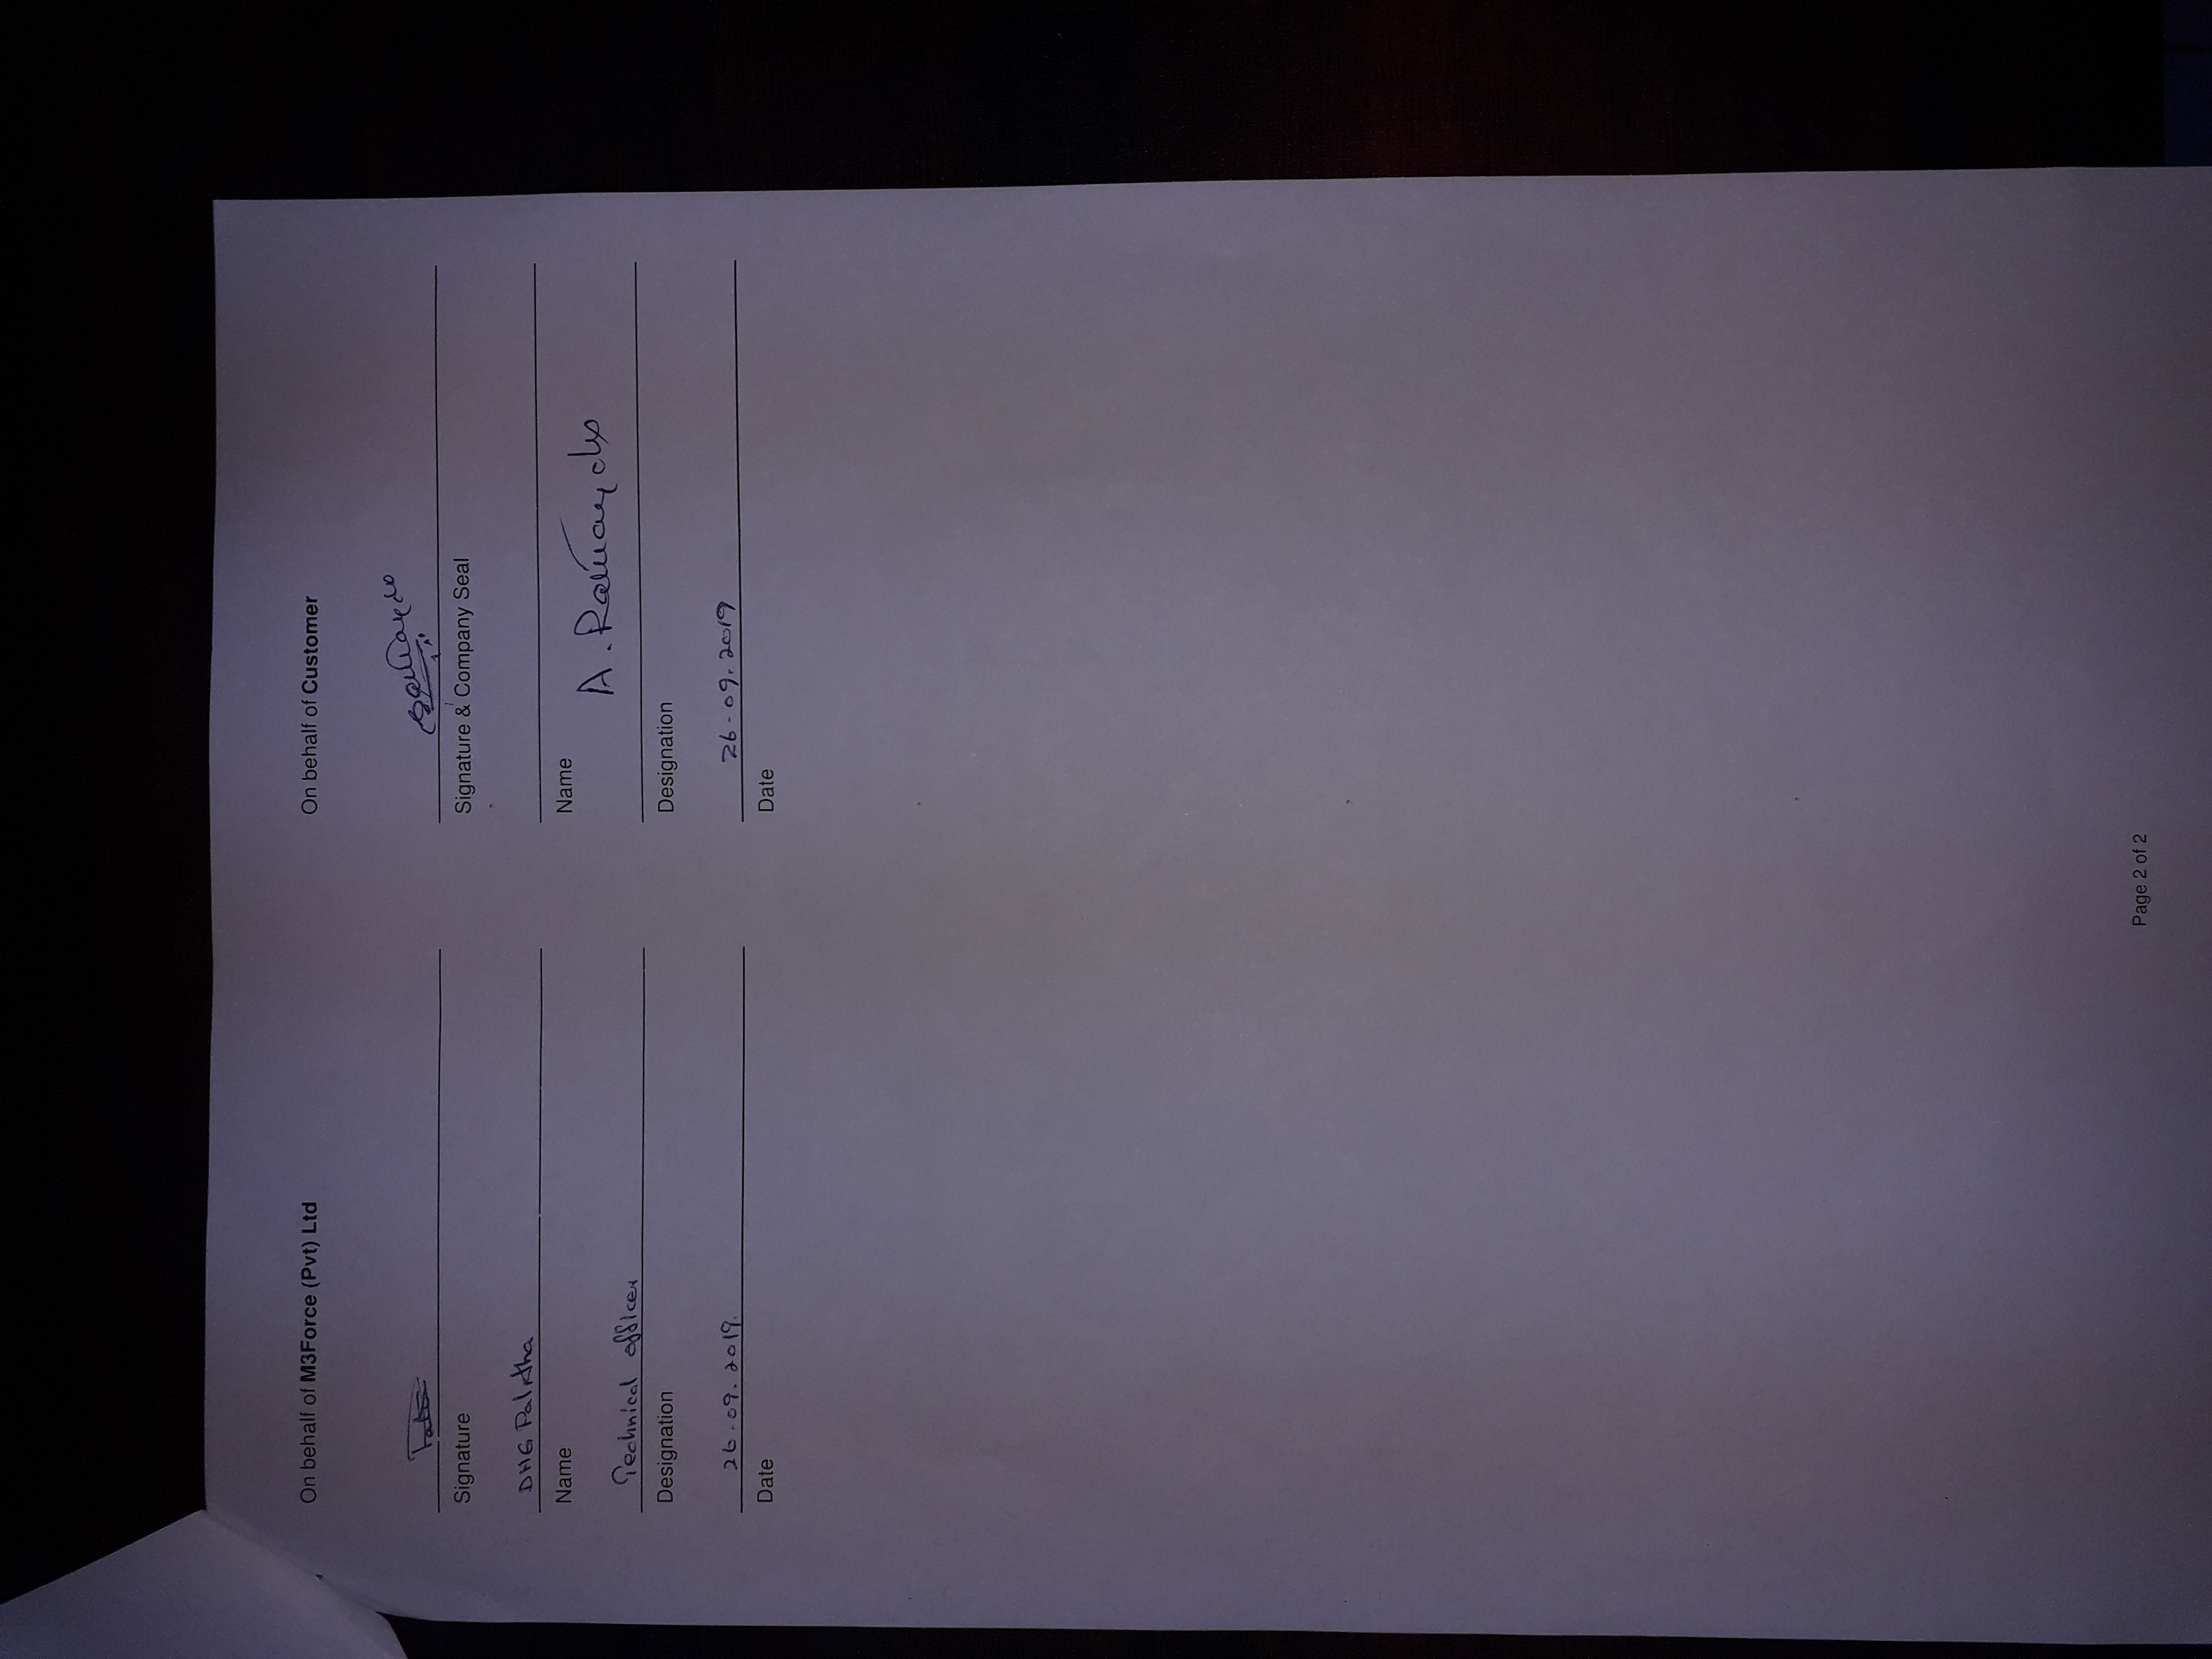 On behalf of M3Force (Pvt) Ltd
Signature
DHG Palitha
Name
Technical officer
Designation
26.09.2019.
Date
On behalf of Customer
Signature & Company Seal
Name
A.
Designation
26-09.2019
Date
Page 2 of 2